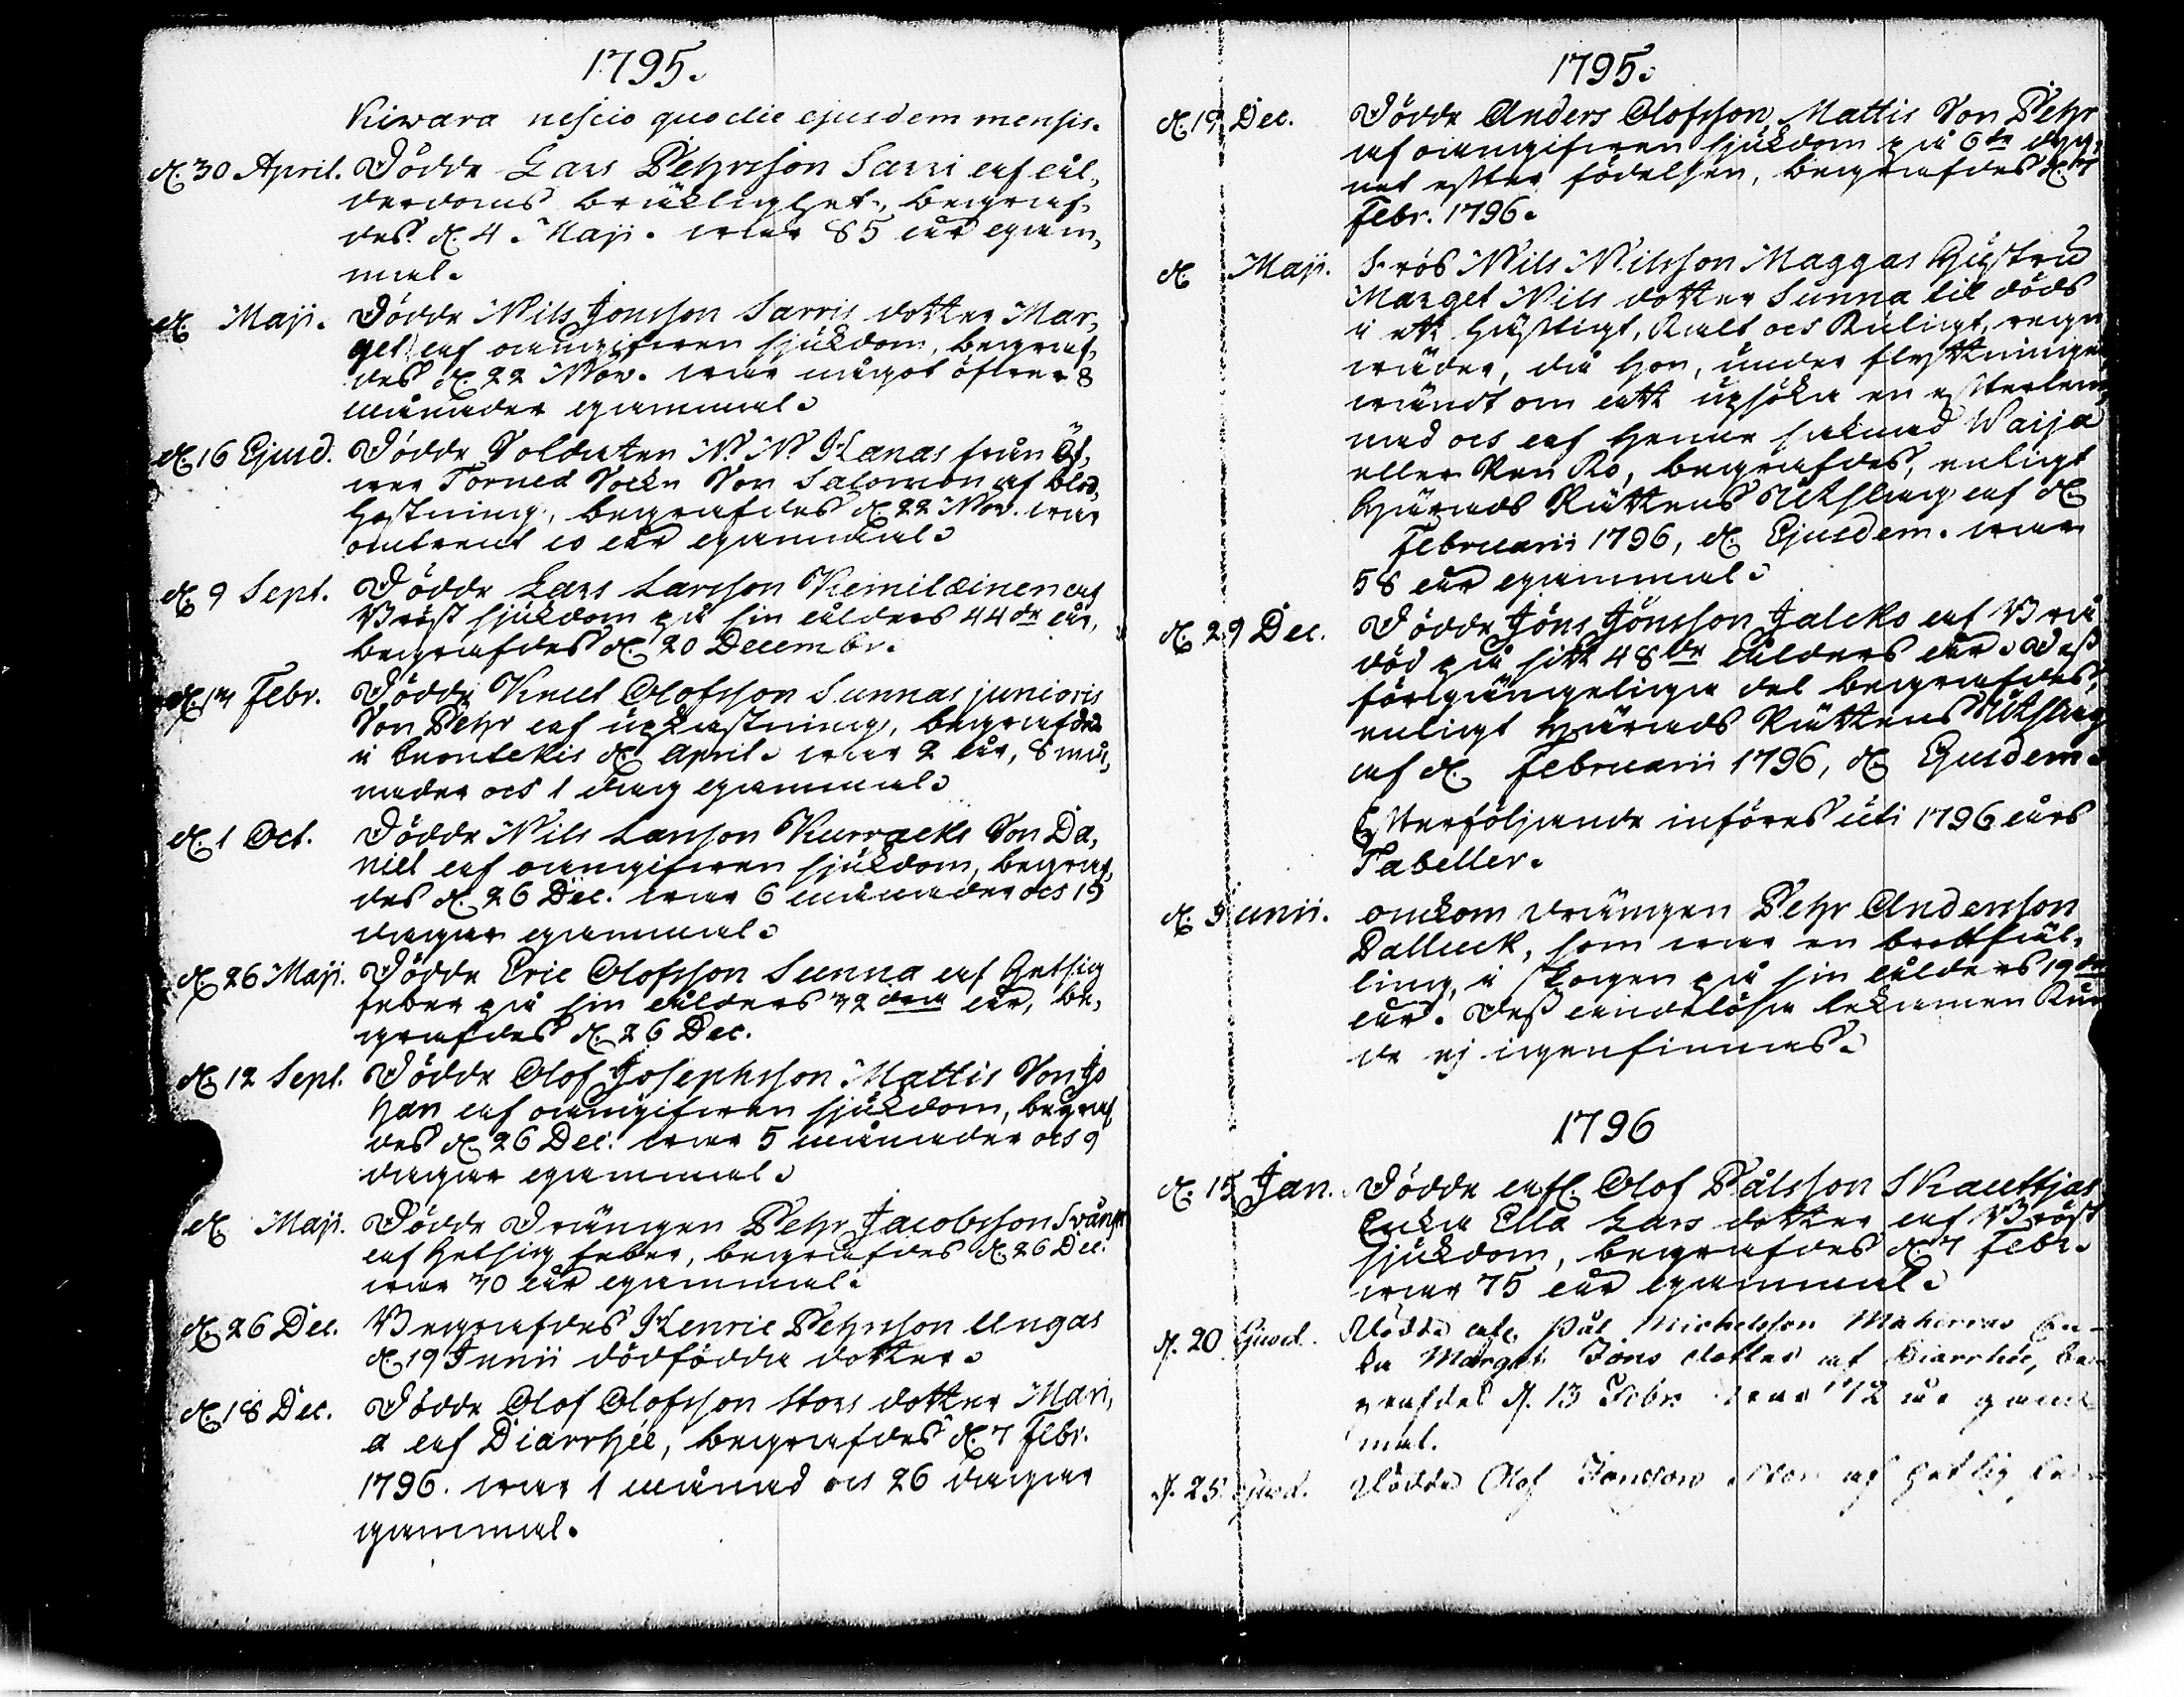 1795.
Kiwara nescio quo die ejusdem mensis.
d. 30 April. Dödde Lars Pehrsson Sarri af ål,
derdoms bräklighet, begraf,
des d. 4 Maji. war 85 år gam,
mal.
d. Maji. Dödde Nils Jonsson Sarris dotter Mar,
get af oangifwen sjukdom, begraf,
des d. 22 Nov. war något öfwer 8
månader gammal.
d. 16 Ejusd. Dödde Soldaten N. N. Kanas från Öf,
wer Torneå Sockn Son Salomon af blod,
hostning, begrafdes d. 22 Nov. war
omtrent 10 år gammal.
d. 9 Sept. Dödde Lars Larsson Kemiläinen af
Bröst sjukdom på sin ålders 44de år,
begrafdes d. 20 Decembr.
Febr. Dödde Knut Olofsson Sunnas junioris
Son Pehr af upkastning, begrafdes
i Enontekis d. April. war 2 år, 8 må,
nader och 1 dag gammal.
d. 1 Oct. Dödde Nils Larsson Kurracks Son Da,
niel af oangifwen sjukdom, begraf,
des d. 26 Dec. war 6 månader och 15
dagar gammal.
d. 26 Maji. Dödde Eric Olofsson Sunna af Hetsig
feber på sin ålders 32dra år, be,
grafdes d. 26 Dec.
d. 12 Sept. Dödde Olof Josephsson Mattis Son Jo
han af oangifwen sjukdom, begraf
des d. 26 Dec. war 5 månader och 9
dagar gammal.
d. Maji. Dödde Drängen Pehr Jacobsson
af Hetsig feber, begrafdes d. 26 Dec.
war 30 år gammal.
d. 26 Dec. Begrafdes Henric Pehrsson Ungas
d. 19 Junii dödfödda dotter.
d. 18 Dec. Dödde Olof Olofsson Stors dotter Mari,
a af Diarrhée, begrafdes d. 7 Febr.
1796. war 1 månad och 26 dagar
gammal.
1795.
d. 19 Dec. Dödde Anders Olofsson Mattis Son Pehr
af oangifwen sjukdom på 6te dyg,
net efter födelsen, begrafdes d. 7
Febr. 1796.
d. Maji. Frös Nils Nilsson Maggas Hustru
Marget Nils dotter Sunna til döds
i ett hastigt, kalt och kuligt, regn
wäder, då hon, under flyttningen,
wändt om att upsöka en efterlem,
nad och af henne saknad Waija
eller Ren Ko, begrafdes, enligt
Härads Rättens Utslag af d.
Februarii 1796, d. Ejusdem. war
58 år gammal.
d. 29 Dec. Dödde Jöns Jönsson Jalcko af Brå
död på sitt 48de ålders år. Dess
förgängeliga del begrafdes,
enligt Härads Rättens Utslag
af d. Februarii 1796, d. Ejusdem.
Efterföljande införes uti 1796 års
Tabeller.
d. Junii. omkom drängen Pehr Andersson
Dalluck, som war en brottfäl,
ling, i skogen på sin ålders 19de
år. Dess andelösa lekamen kun
de ej igenfinnas.
1796
d. 15 Jan. Dödde afl. Olof Pålsson Skauttjas
Enka Ella Lars dotter af Bröst
sjukdom, begrafdes d. 7 Febr.
war 75 år gammal.
d. 20 Ejusd. Dödde afl. Pål Michelsson En-
ka Marget Jöns dotter af Diarrhée, be-
grafdes d. 13 Febr. war 72 år gam-
mal.
d. 25 Ejusd. Dödde Olof Jonsson af Hetsig